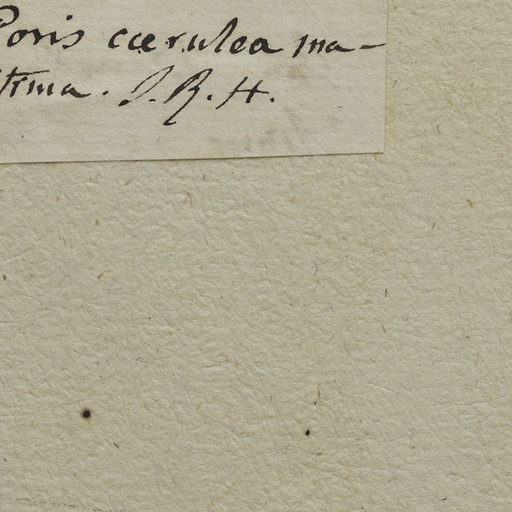 Poris cærulea ma-
ítima. I. R. H.